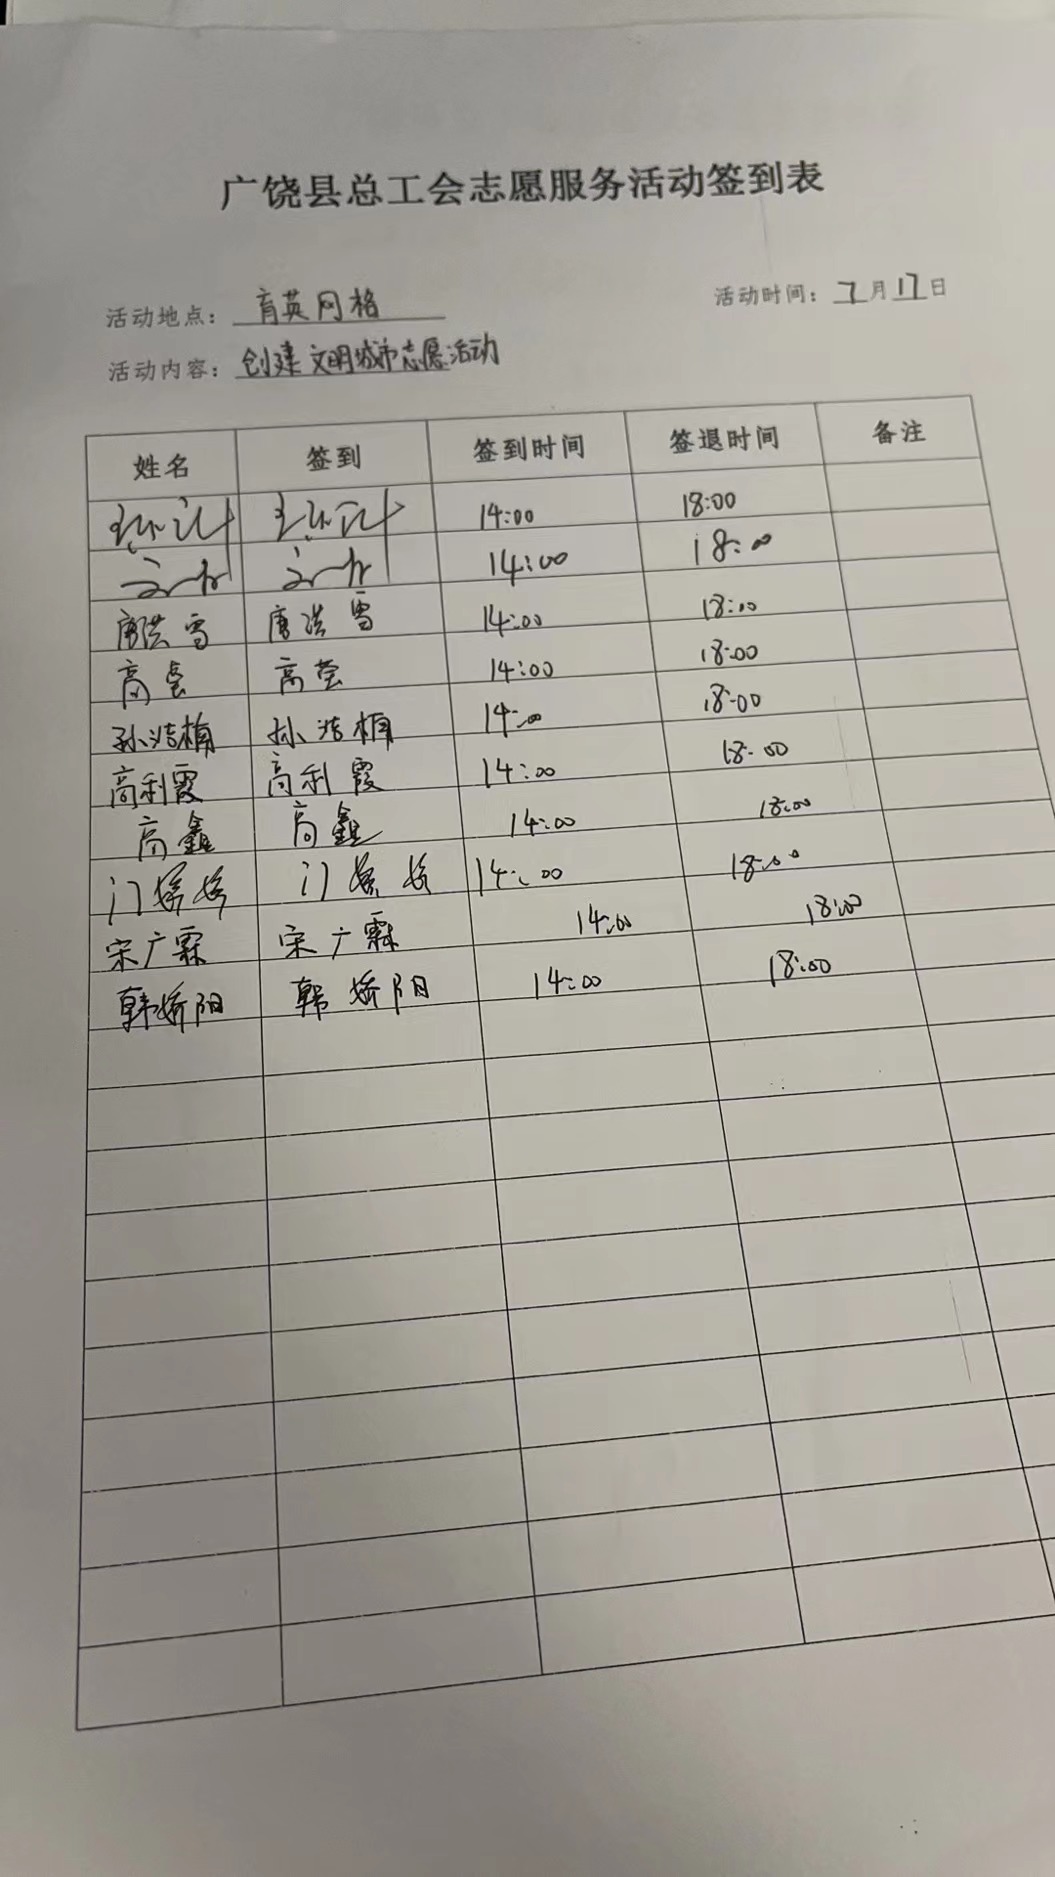 广饶县总工会志愿服务活动签到表
活动地点：育英网格 活动时间：7月17日
活动内容：创建文明城市志愿活动
姓名 签到 签到时间 签退时间 备注
14:00 18:00
14:00 18:00
唐洪雪 唐洪雪 14:00 18:00
高荟 高荟 14:00 18:00
孙浩楠 孙浩楠 14:00 18:00
高利霞 高利霞 14:00 18:00
高鑫 高鑫 14:00 18:00
门 门 14:00 18:00
宋广霖 宋广霖 14:00 18:00
韩娇阳 韩娇阳 14:00 18:00